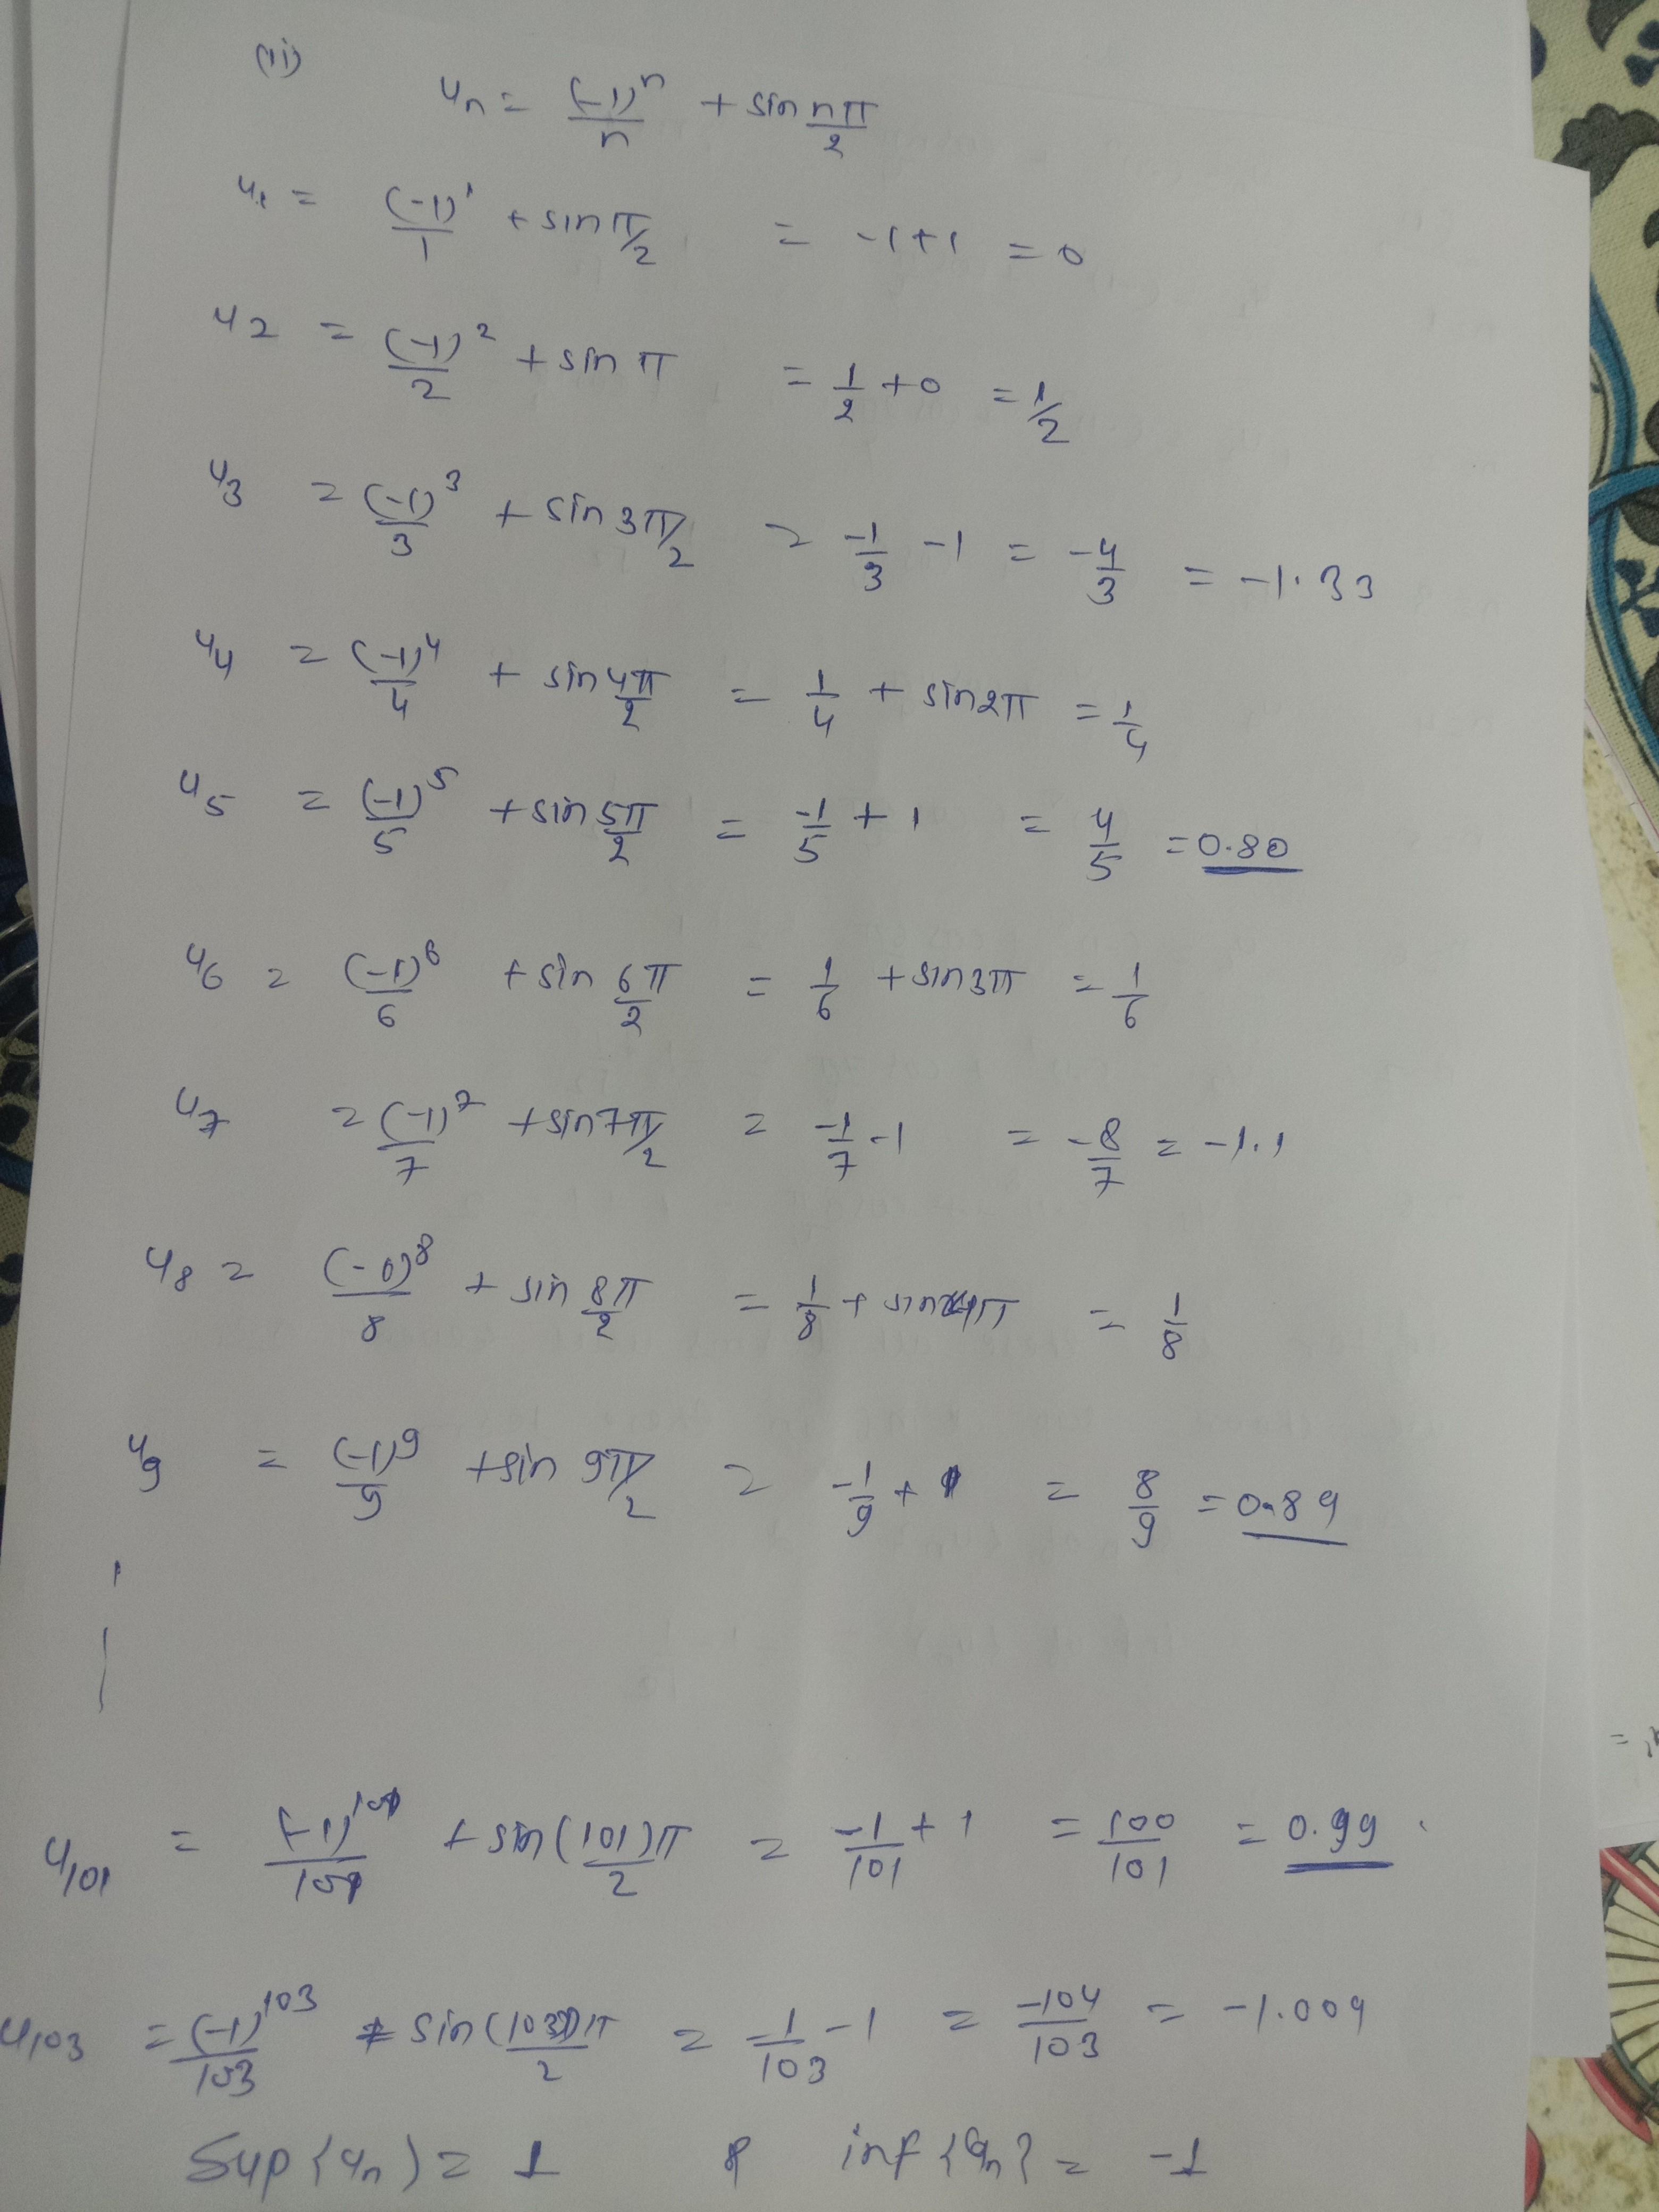 (ii)
u_n = (-1)^n/n + sin nπ/2
u_1 = (-1)^1/1 + sin π/2 = -1+1 = 0
u_2 = (-1)^2/2 + sin π = 1/2 + 0 = 1/2
u_3 = (-1)^3/3 + sin 3π/2 = -1/3 - 1 = -4/3 = -1.33
u_4 = (-1)^4/4 + sin 4π/2 = 1/4 + sin 2π = 1/4
u_5 = (-1)^5/5 + sin 5π/2 = -1/5 + 1 = 4/5 = 0.80
u_6 = (-1)^6/6 + sin 6π/2 = 1/6 + sin 3π = 1/6
u_7 = (-1)^7/7 + sin 7π/2 = -1/7 - 1 = -8/7 = -1.1
u_8 = (-1)^8/8 + sin 8π/2 = 1/8 + sin 4π = 1/8
u_9 = (-1)^9/9 + sin 9π/2 = -1/9 + 1 = 8/9 = 0.89
u_101 = (-1)^101/101 + sin (101)π/2 = -1/101 + 1 = 100/101 = 0.99
u_103 = (-1)^103/103 + sin (103)π/2 = -1/103 - 1 = -104/103 = -1.009
Sup {u_n} = 1 & inf {u_n} = -1